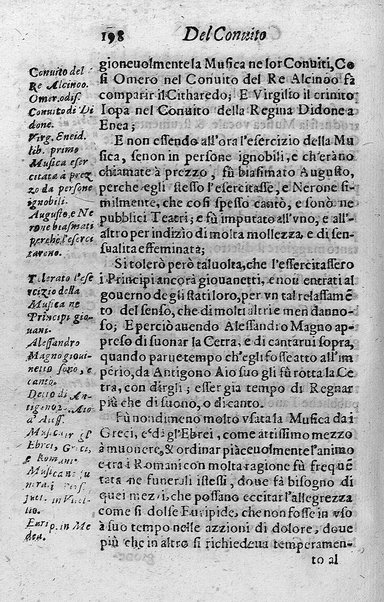 198 Del Conuito
gioneuolmente la Musica ne lor Conuiti, Co
sì Omero nel Conuito del Re Alcinoo fà
comparir il Citharedo; E Virgilio il crinito
Iopa nel Conuito della Regina Didone a
Enea;
E non essendo all'ora l'esercizio della Mu
sica, se non in persone ignobili, e ch'erano
chiamate à prezzo, fù biasimato Augusto,
perche egli stesso l'esercitasse, e Nerone si-
milmente, che così spesso cantò, e sonò ne
pubblici Teatri; e fù imputato all'vno, e all'al-
stro per indizio di molta mollezza, e di sen-
sualita effeminata;
Si tolerò però taluolta, che l'essercitassero
i Principi ancorà giouanetti, e nou entrati al
gouerno de gli stati loro, per vn tal relassamé
to del senso, che di molti altri e men danno-
so; E perciò auendo Alessandro Magno ap-
preso di suonar la Cetra, e di cantarui sopra,
quando parue tempo ch'egli fosse atto all'im
perio, da Antigono Aio suo gli fù rotta la Ce
tra, con dirgli; esser già tempo di Regnar
più che di suono, o di canto.
Fù nondimeno molto vsata la Musica da i
Greci, e da gl'Ebrei, come attissimo mezzo
à muouere, & ordinar piàceuolmente l'animo
e tra i Romani con molta ragione fù frequé
tata ne funerali istessi, doue fà bisogno di
quei mezi, che possano eccitar l'allegrezza
come si dolse Euripide, che non fosse in vso
à suo tempo nelle azzioni di dolore, doue
più che in altro si richiedeua temperamen-
to al
Conuito del
Re Alcinoo.
Omer. odis.
Conuito di Di
done.
Virg. Eneid.
lib. primo
Musica eser
citata à prez
zo da persone
ignobili.
Augusto, e Ne
rone biasmati
perche l'eserci
tarono.
Tolerato l'ese
rcizio della
Musica ne
Principi gio
uani.
Alessandro
Magno gioui
netto sonò, e
cantò.
Detto di An-
tigono Aio
Musica gl'
Ebrei, Greci,
e Romani.
Musica ne fu
nerali
Eurip. in Me
dea.